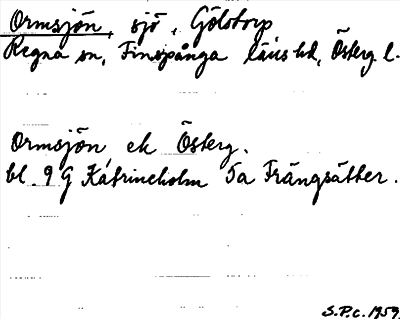 Ormsjön, sjö, Gölstorp
Regna sn, Finspånga läns hd, Österg. l.
Ormsjön ek Österg.
bl. 9 G Katrineholm 5a Frängsätter.
S.P.c. 1959.